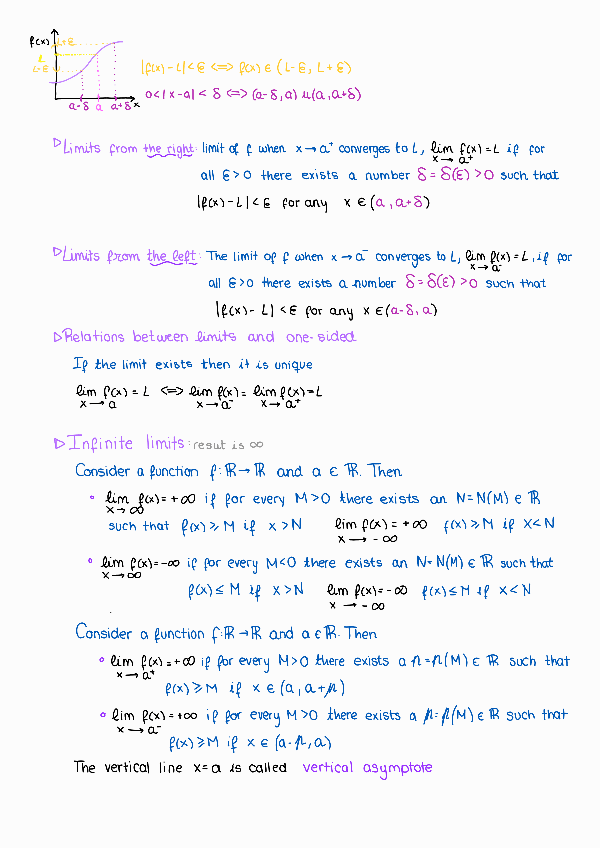 f(x)
L+ε
L
L-ε
a-δ a a+δ x
|f(x)-L|<ε <=> f(x) ∈ (L-ε, L+ε)
0<|x-a|< δ <=> (a-δ,a) u(a,a+δ)
▷Limits from the right: limit of f when x→a⁺ converges to L, lim f(x)=L if for
x→a⁺
all ε>0 there exists a number δ=δ(ε)>0 such that
|f(x)-L|<ε for any x ∈(a,a+δ)
▷Limits from the left: The limit of f when x→a⁻ converges to L, lim f(x)=L, if for
x→a⁻
all ε>0 there exists a number δ=δ(ε)>0 such that
|f(x)-L|<ε for any x ∈(a-δ,a)
▷Relations between limits and one-sided
If the limit exists then it is unique
lim f(x)=L <=> lim f(x)= lim f(x)=L
x→a x→a⁻ x→a⁺
▷Infinite limits: result is ∞
Consider a function f:ℝ→ℝ and a ∈ ℝ. Then
° lim f(x)=+∞ if for every M>0 there exists an N=N(M) ∈ ℝ
x→∞
such that f(x)⩾M if x>N lim f(x)=+∞ f(x)⩾M if x<N
x→-∞
° lim f(x)=-∞ if for every M<0 there exists an N=N(M) ∈ ℝ such that
x→∞
f(x)≤M if x>N lim f(x)=-∞ f(x)≤M if x<N
x→-∞
Consider a function f:ℝ→ℝ and a∈ℝ. Then
° lim f(x)=+∞ if for every M>0 there exists a =(M) ∈ ℝ such that
x→a⁺
f(x)⩾M if x ∈(a,a+)
° lim f(x)=+∞ if for every M>0 there exists a =(M) ∈ ℝ such that
x→a⁻
f(x)⩾M if x ∈(a-,a)
The vertical line x=a is called vertical asymptote